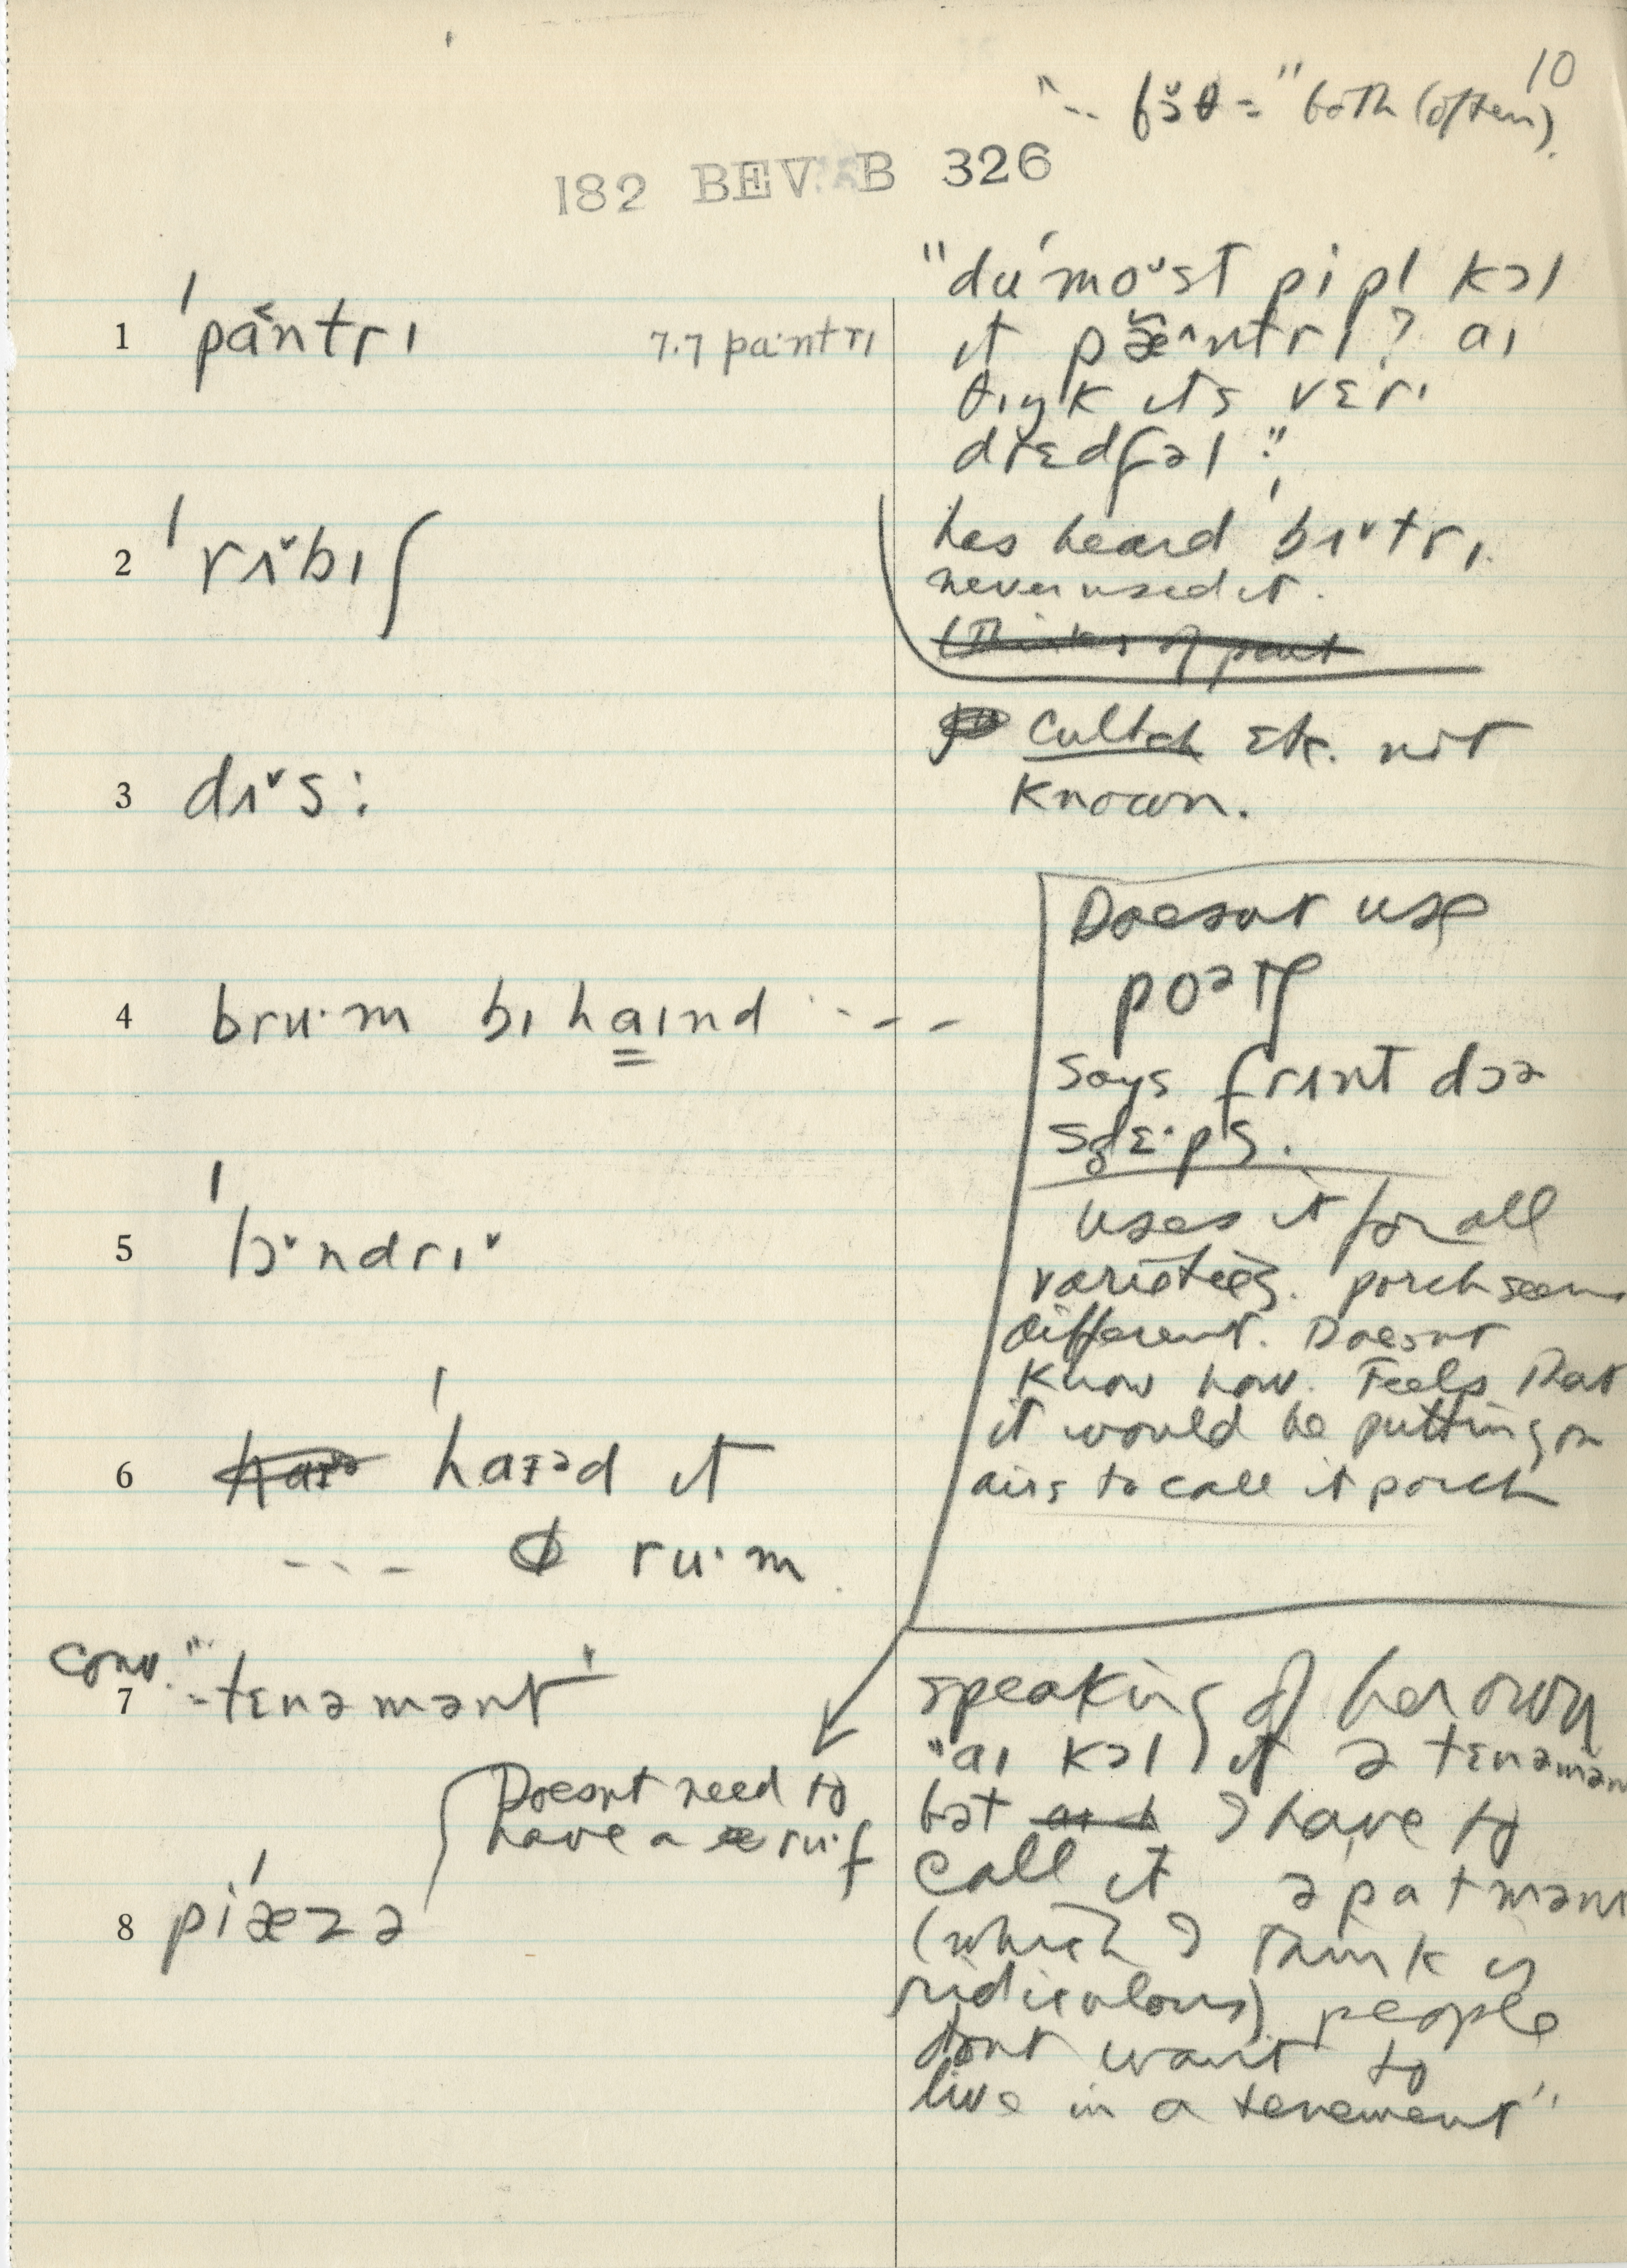 10
-- bɔ̆θ = "both (often).
182 BEV. B 326
1 ˈpaˇntrɪ 7.7 pa·ntrɪ
"du ˈmoᵘst pipl kɔl
ɪt pæˆntrɪ? aɪ
θɪŋk ɪts vɛrɪ
drɛdfəl."
2 ˈrʌˇbɪʃ
has heard ˈbʌˇtrɪ.
never used it.
3 dʌˇs:
cultch etc. not
known.
4 bru·m bɪhaɪnd ---
Doesnt use
poətʃ
says frʌnt dɔə
stɛ·ps.
5 ˈlɔˇndrɪˇ
Uses it for all
varieties. porch seems
different. Doesnt
know how. Feels that
it would be putting on
airs to call it porch
6 ˈhaɪəd ɪt
--- ru·m
conv.
7 "-tɛnəmənt"
Doesnt need to
have a ru·f
8 piˈæzə
speaking of her own
"aɪ kɔl it ə tɛnəmən
bət I have to
call it əpatmənt
(which I think is
ridiculous) people
dont want to
live in a tenement"